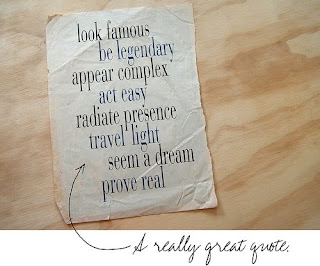 look famous
be legendary
appear complex
act easy
radiate presence
travel light
seem a dream
prove real
A really great quote.